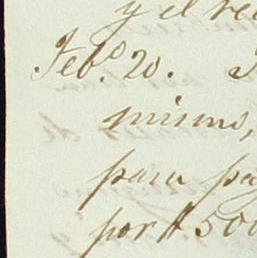 y el re
Feb.º 20.
mismo,
para pa
por $ 500